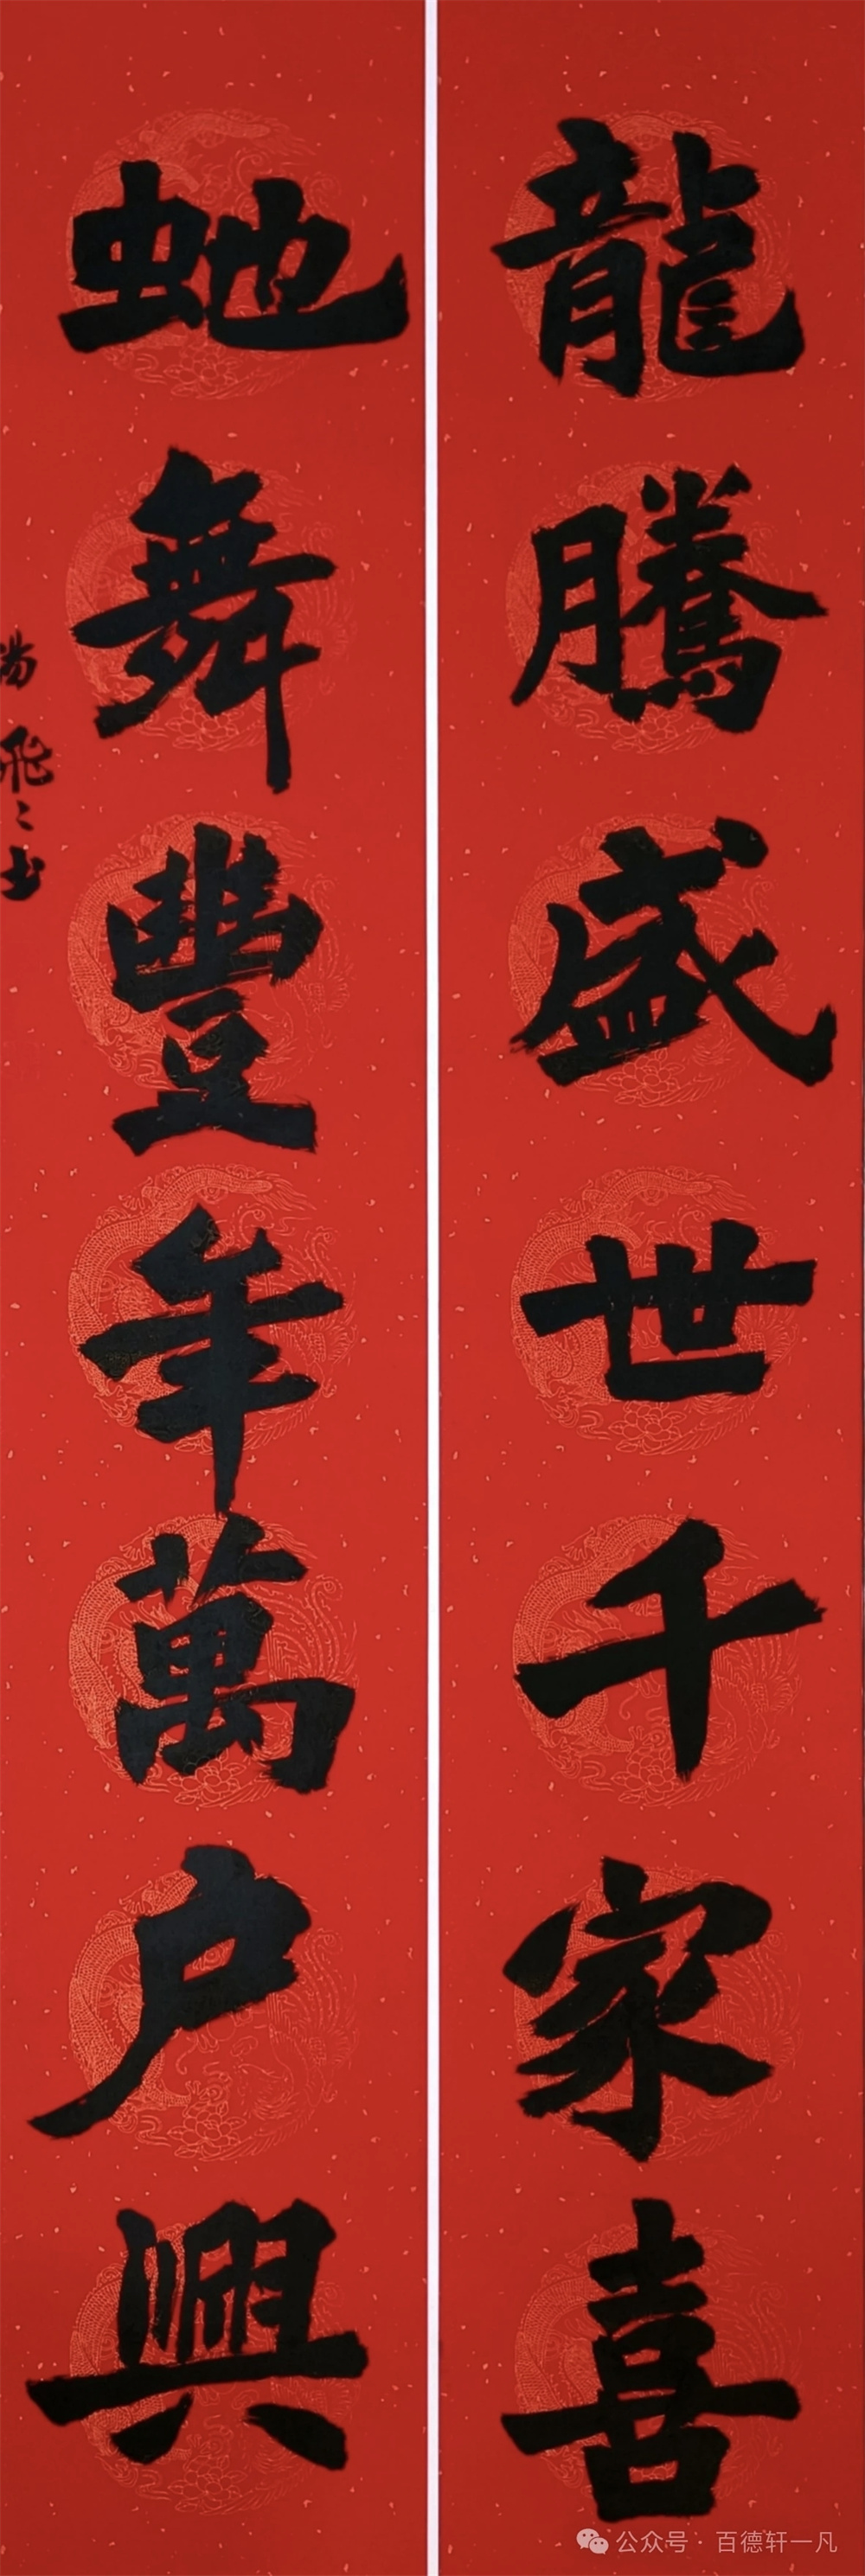 龍騰盛世千家喜
虵舞豐年萬户興
楊飛飞书
公众号·百德轩一凡